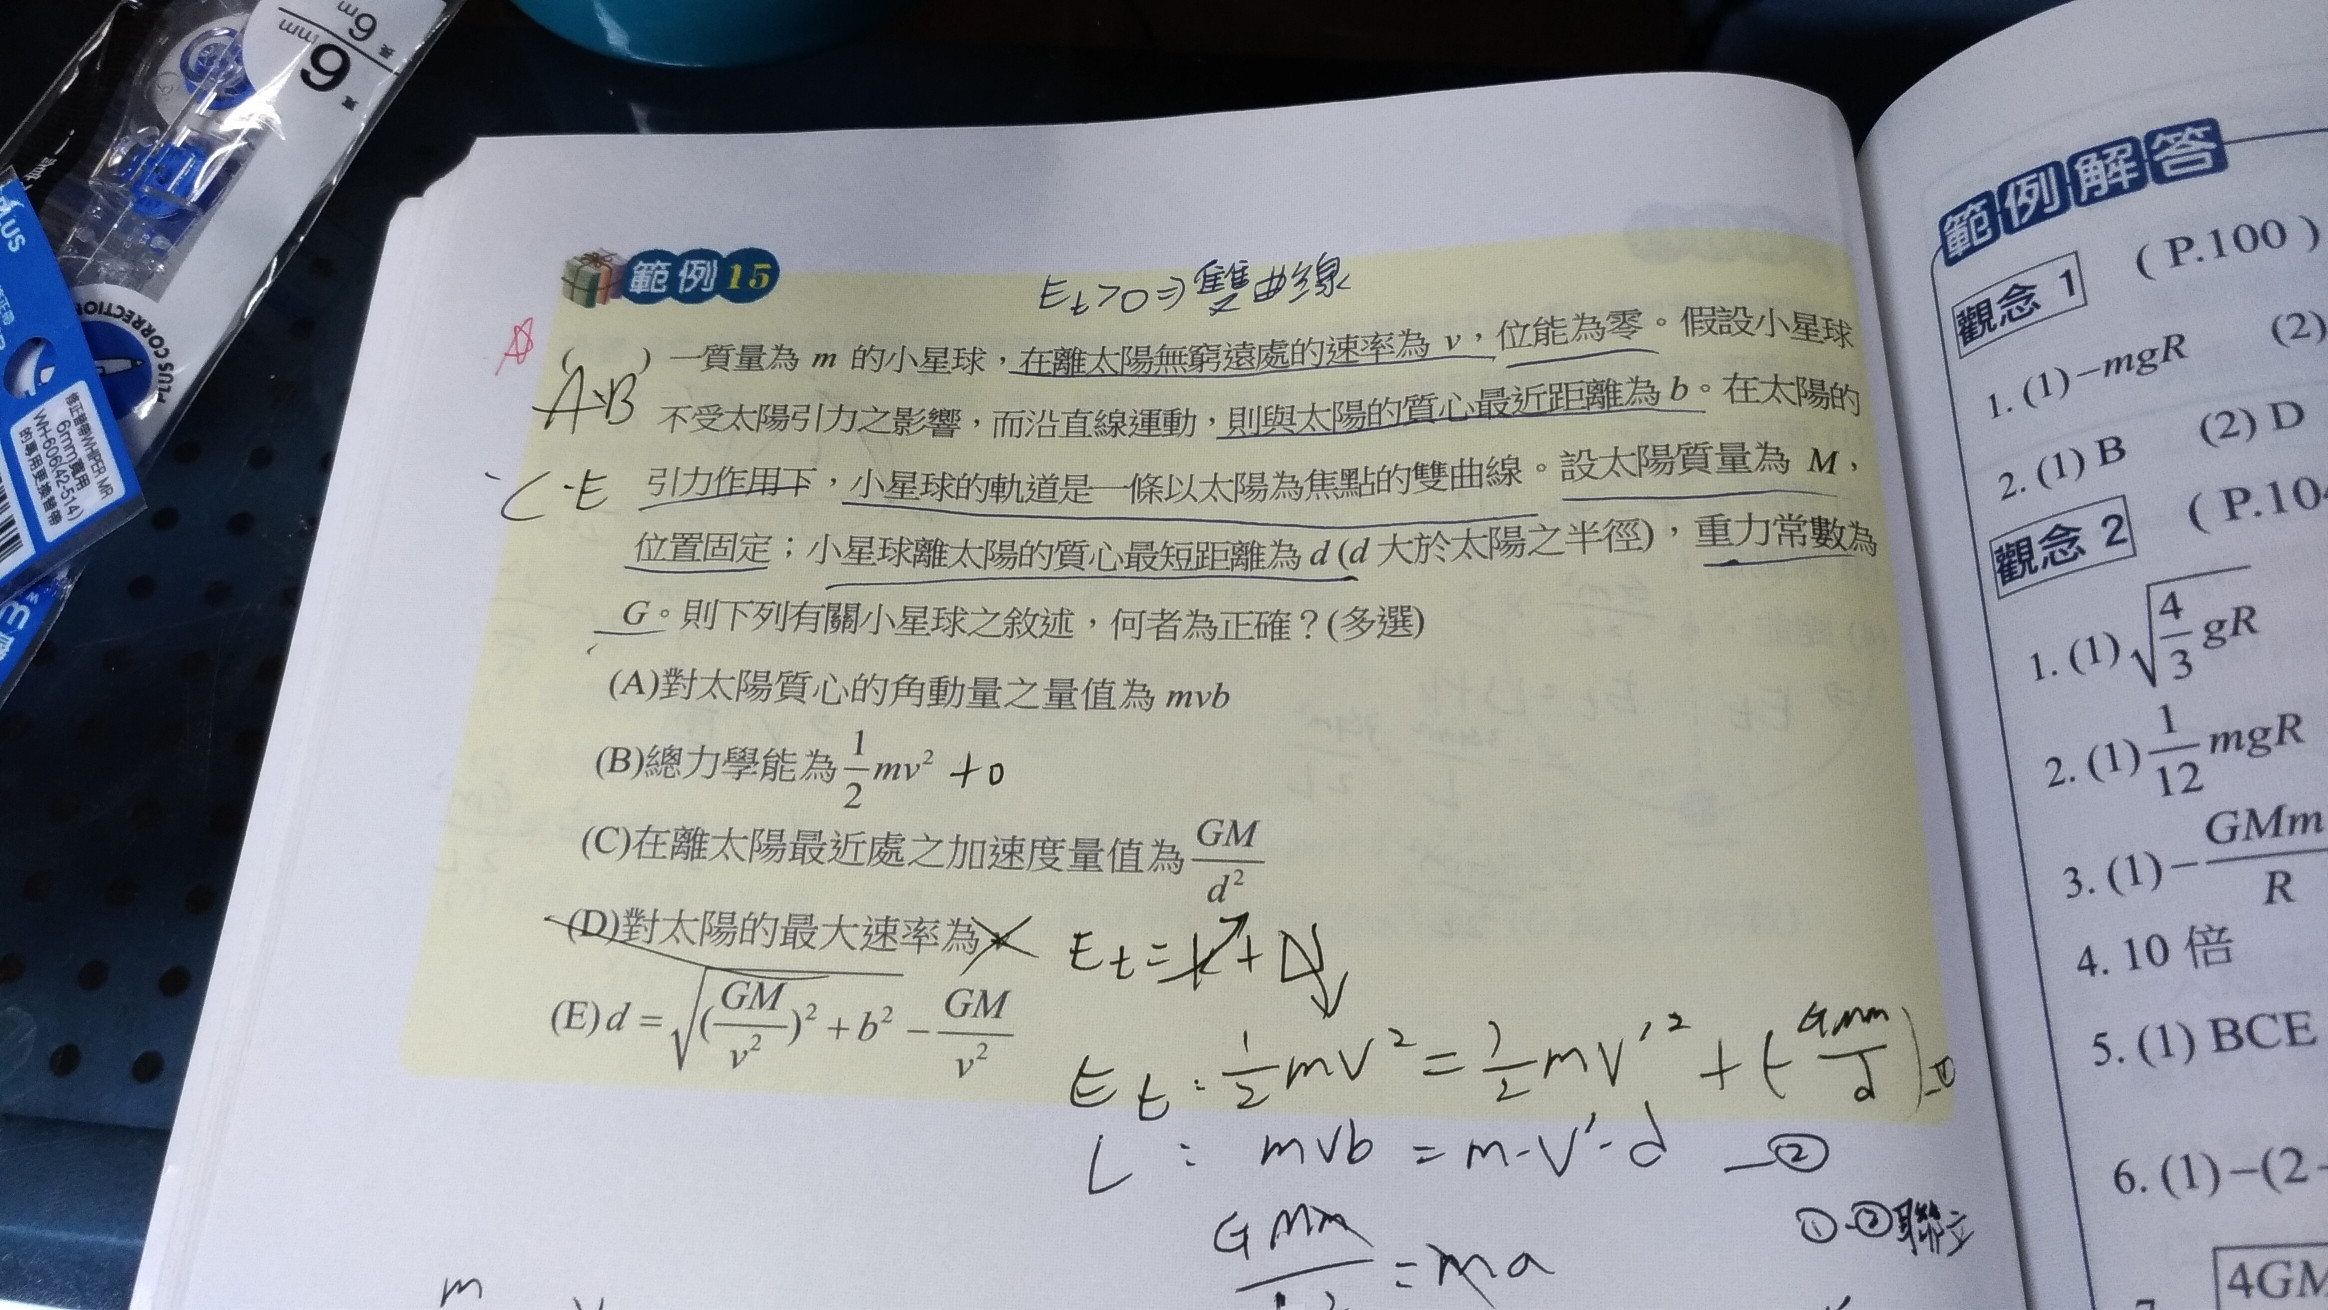 6mm
寬
6m
長
PLUS
CORRECTION
PLUS
修正替帶WHIPER MR
6mm寬用
WH-606(42-514)
的專用更換替帶
範例15
Et>0⇒雙曲線
( ) 一質量為 m 的小星球，在離太陽無窮遠處的速率為 v，位能為零。假設小星球
A、B
不受太陽引力之影響，而沿直線運動，則與太陽的質心最近距離為 b。在太陽的
C、E
引力作用下，小星球的軌道是一條以太陽為焦點的雙曲線。設太陽質量為 M，
位置固定；小星球離太陽的質心最短距離為 d (d 大於太陽之半徑)，重力常數為
G。則下列有關小星球之敘述，何者為正確？(多選)
(A)對太陽質心的角動量之量值為 mvb
(B)總力學能為 1/2 mv² +0
(C)在離太陽最近處之加速度量值為 GM/d²
(D)對太陽的最大速率為 v
Et=k+U
(E) d = √((GM/v²)² + b²) − GM/v²
Et : 1/2 mV² = 1/2 mV'² + (-GMm/d) -①
L : mvb = m·V'·d -②
①·②聯立
GMm
= ma
m
範例解答
觀念 1 ( P.100 )
1. (1)−mgR (2)
2. (1) B (2) D
觀念 2 ( P.104
1. (1) √(4/3 gR)
2. (1) 1/12 mgR
3. (1)−GMm/R
4. 10 倍
5. (1) BCE
6. (1)−(2
4GM